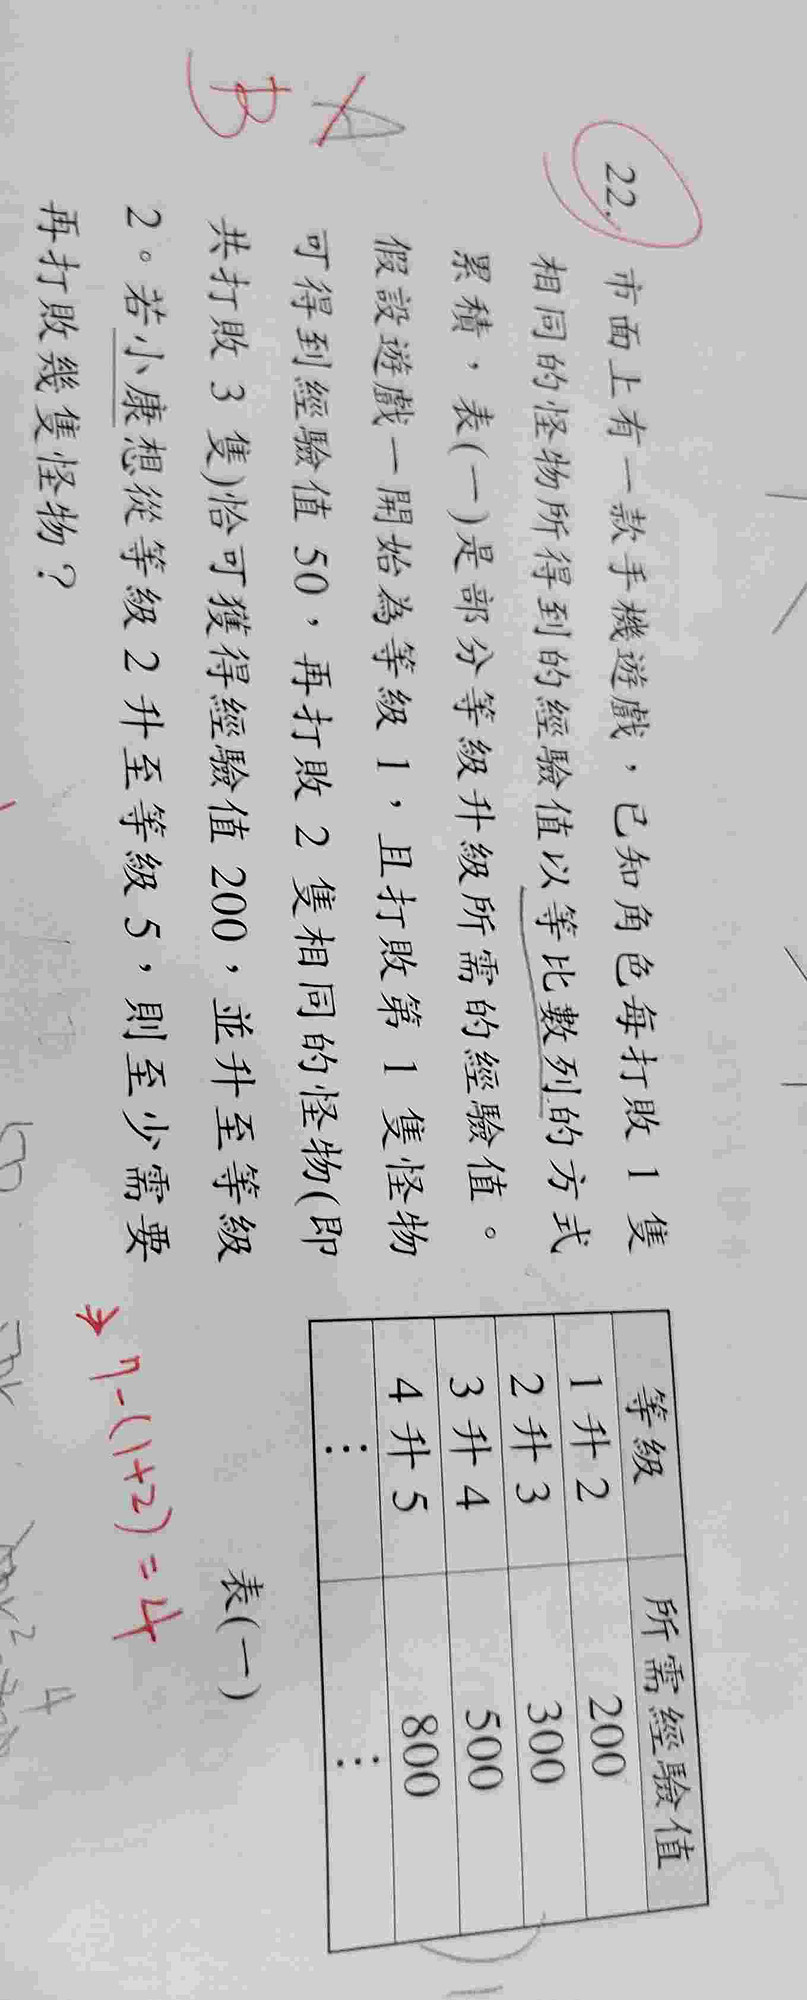 22. 市面上有一款手機遊戲，已知角色每打敗 1 隻
相同的怪物所得到的經驗值以等比數列的方式
累積，表(一)是部分等級升級所需的經驗值。
假設遊戲一開始為等級 1，且打敗第 1 隻怪物
可得到經驗值 50，再打敗 2 隻相同的怪物(即
共打敗 3 隻)恰可獲得經驗值 200，並升至等級
2。若小康想從等級 2 升至等級 5，則至少需要
再打敗幾隻怪物？
A
B
等級 所需經驗值
1 升 2 200
2 升 3 300
3 升 4 500
4 升 5 800
⋮ ⋮
表(一)
→ 7-(1+2)=4
4